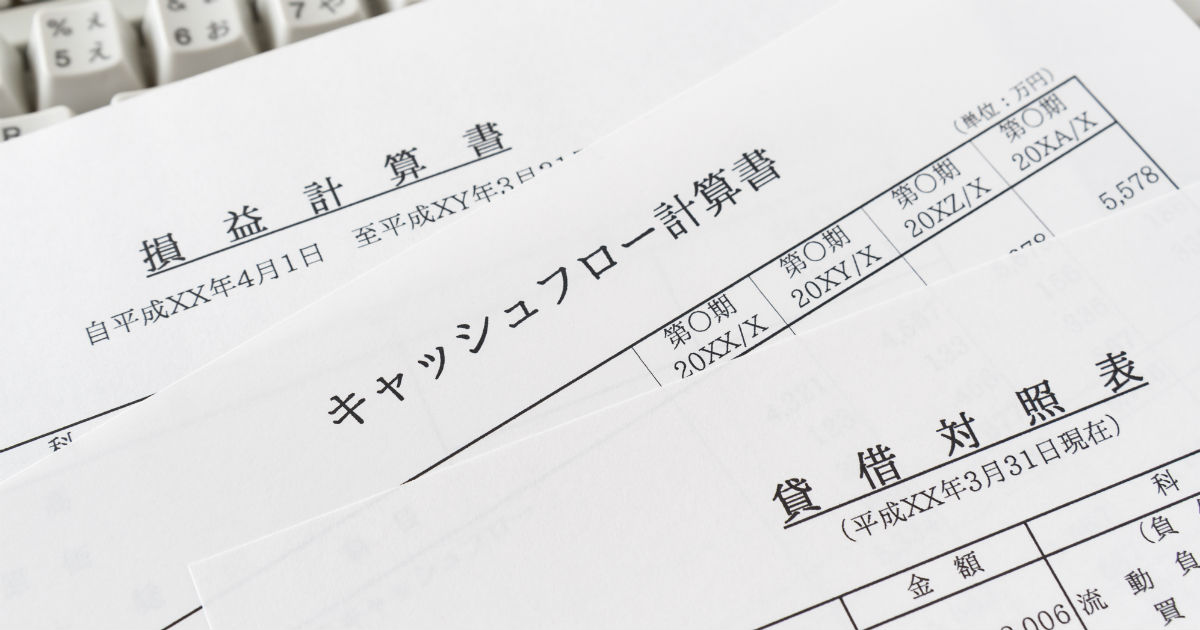 % え
5 え
&
6 お
7 や
損益計算書
自平成XX年4月1日 至平成XY年3月31
科
キャッシュフロー計算書
(単位：万円)
第〇期 第〇期 第〇期 第〇期
20XX/X 20XY/X 20XZ/X 20XA/X
5,578
貸借対照表
(平成XX年3月31日現在)
金額 科
(負
流動負
買